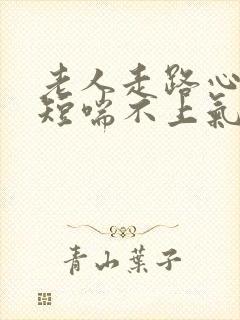 老人走路心
短喘不上氣
青山葉子